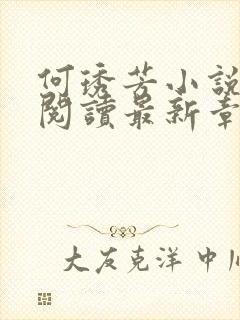 何琇芳小說
閱讀最新章
大友克洋 中川